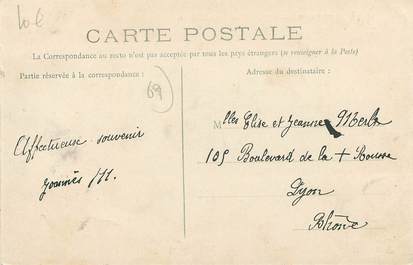 CARTE POSTALE
La Correspondance au recto n'est pas acceptée par tous les pays étrangers (se renseigner à la Poste)
Partie réservée à la correspondance :
Adresse du destinataire :
69
Affectueux souvenir
Joannès
Mlles Elise et Jeanne
105 Boulevard de la + Rousse
Lyon
Rhône